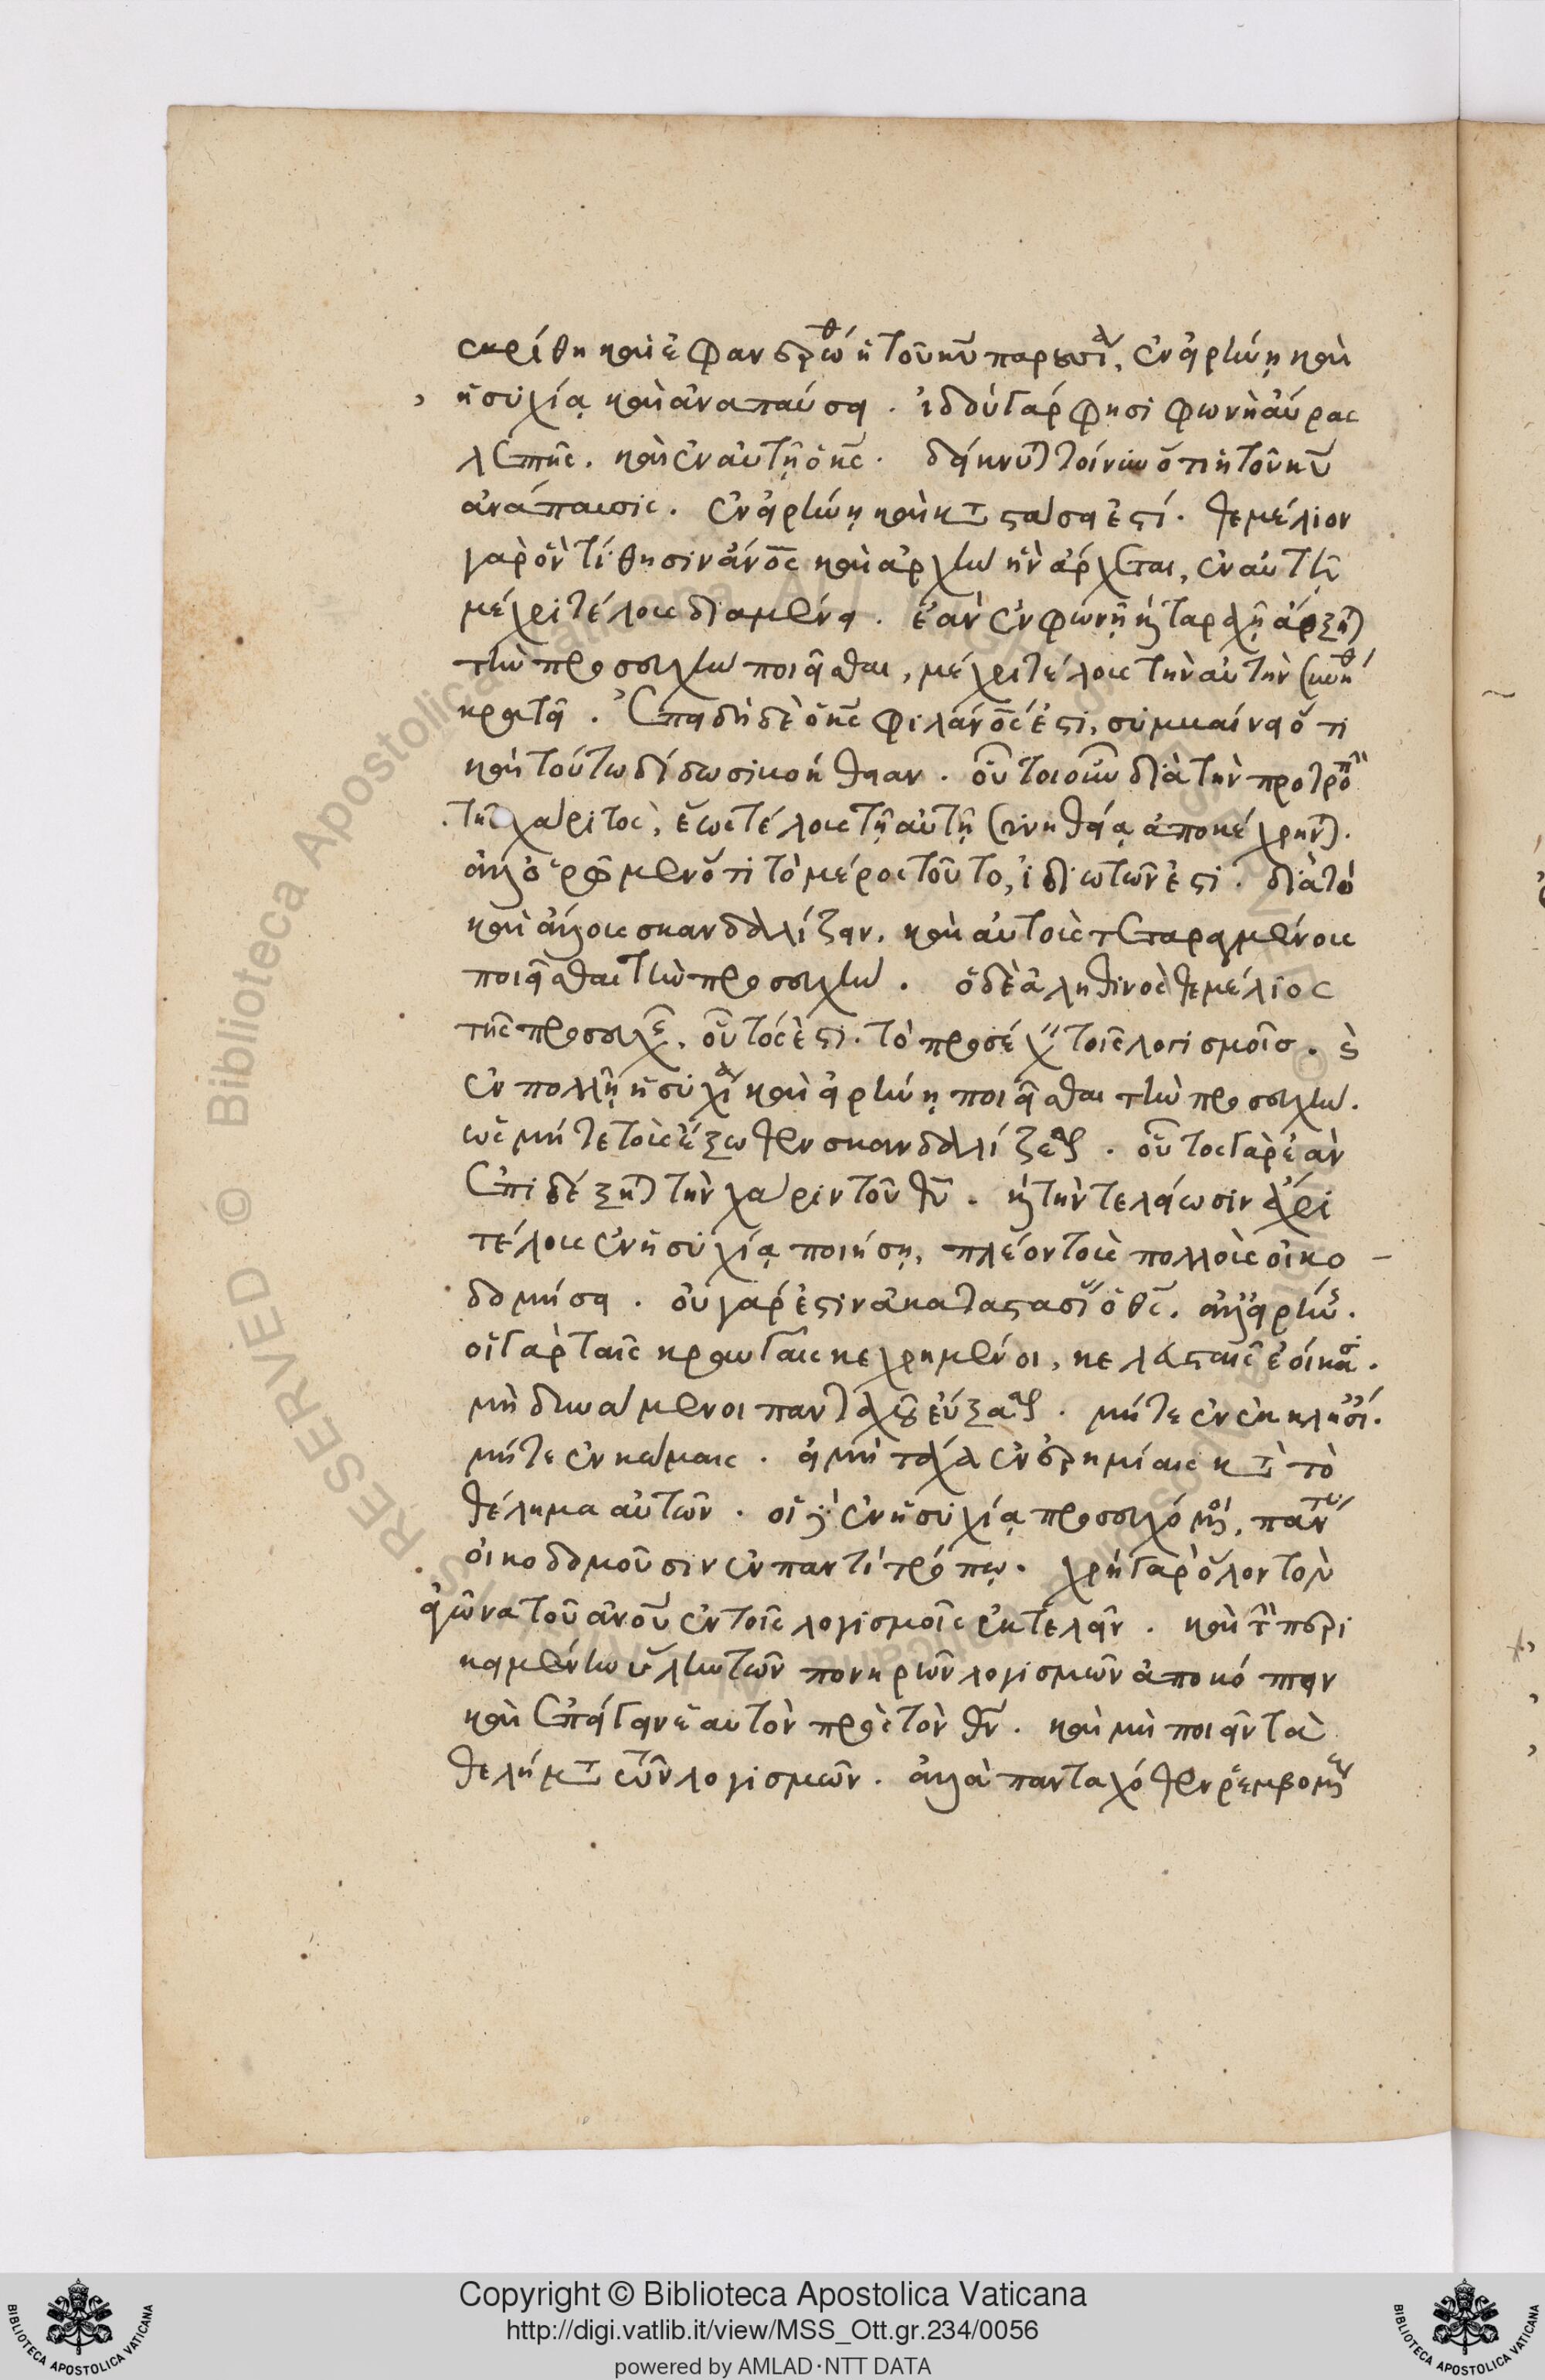 εκρίθη καὶ ἐφανερώθη ἡ τοῦ κυ παρουσία, ἐν εἰρήνῃ καὶ
ἡσυχίᾳ καὶ ἀναπαύσει. ἰδοὺ γάρ φησι φωνὴ αὔρας
λεπτῆς. καὶ ἐν αὐτῇ ὁ κς. δείκνυται τοίνυν ὅτι ἡ τοῦ κυ
ἀνάπαυσις. ἐν εἰρήνῃ καὶ καταστάσει ἐστί. θεμέλιον
γὰρ ὃν τίθησιν ἄνος καὶ ἀρχὴν ἣν ἄρχεται, ἐν αὐτῇ
μέχρι τέλους διαμένει. ἐὰν ἐν φωνῇ καὶ ταραχῇ ἄρξηται
τὴν προσευχὴν ποιεῖσθαι, μέχρι τέλους τὴν αὐτὴν συνήθειαν
κρατεῖ. Ἐπειδὴ δὲ ὁ κς φιλάνος ἐστι, συμβαίνει ὅτι
καὶ τούτῳ δίδωσι βοήθειαν. οὗτοι οὖν διὰ τὴν προτροπὴν
τῆς χάριτος, ἕως τέλους τῇ αὐτῇ συνηθείᾳ ἀποκέχρηνται.
ἀλλ' ὁρῶμεν ὅτι τὸ μέρος τοῦτο, ἰδιωτῶν ἐστι. διὰ τὸ
καὶ ἄλλους σκανδαλίζειν, καὶ αὐτοὺς τεταραγμένους
ποιεῖσθαι τὴν προσευχὴν. ὁ δὲ ἀληθινὸς θεμέλιος
τῆς προσευχῆς, οὗτός ἐστι. τὸ προσέχειν τοῖς λογισμοῖς. καὶ
ἐν πολλῇ ἡσυχίᾳ καὶ εἰρήνῃ ποιεῖσθαι τὴν προσευχὴν.
ὡς μήτε τοὺς ἔξωθεν σκανδαλίζεσθαι. οὗτος γὰρ ἐὰν
ἐπιδέξηται τὴν χάριν τοῦ θυ. καὶ τὴν τελείωσιν ἄχρι
τέλους ἐν ἡσυχίᾳ ποιήσῃ, πλέον τοὺς πολλοὺς οἰκο-
δομήσει. οὐ γάρ ἐστιν ἀκαταστασίας ὁ θς. ἀλλ' εἰρήνης.
οἱ γὰρ ταῖς κραυγαῖς κεχρημένοι, κελευσταῖς ἐοίκασι.
μὴ δυνάμενοι πανταχοῦ εὔξασθαι. μήτε ἐν ἐκκλησίαις.
μήτε ἐν κώμαις. εἰ μὴ τάχα ἐν ἐρημίαις κατὰ τὸ
θέλημα αὐτῶν. οἱ δὲ ἐν ἡσυχίᾳ προσευχόμενοι, πάντας
οἰκοδομοῦσιν ἐν παντὶ τρόπῳ. χρὴ γὰρ ὅλον τὸν
ἀγῶνα τοῦ ἀνου ἐν τοῖς λογισμοῖς ἐκτελεῖν. καὶ τὴν περι
κειμένην ὕλην τῶν πονηρῶν λογισμῶν ἀποκόπτειν
καὶ ἐπείγειν ἑαυτὸν πρὸς τὸν θν. καὶ μὴ ποιεῖν τὰ
θελήματα τῶν λογισμῶν. ἀλλὰ πανταχόθεν ῥεμβομένους